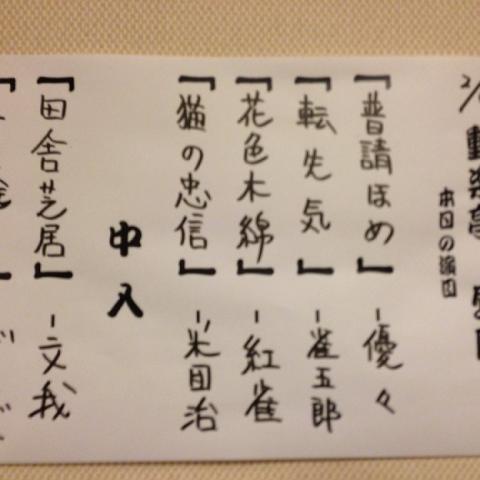 動楽亭
本日の演目
『普請ほめ』-優々
『転失気』-雀五郎
『花色木綿』-紅雀
『猫の忠信』-米団治
中入
『田舎芝居』-文我